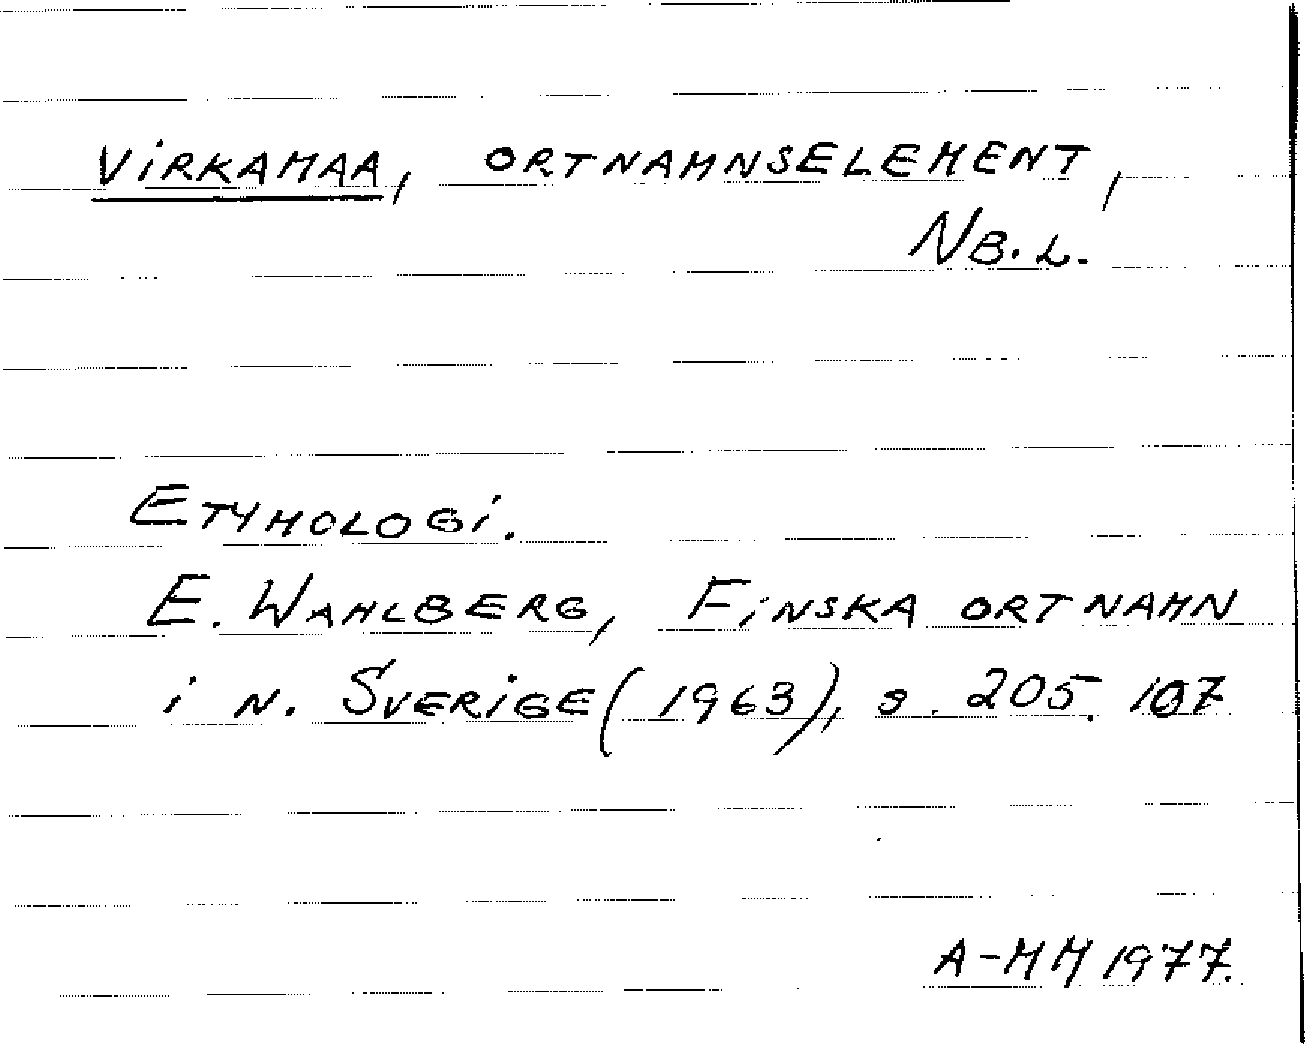 VIRKAMAA, ORTNAMNSELEMENT,
NB.L.
ETYMOLOGI.
E. WAHLBERG, FINSKA ORTNAMN
I N. SVERIGE (1963), s. 205. 107
A-MM 1977.